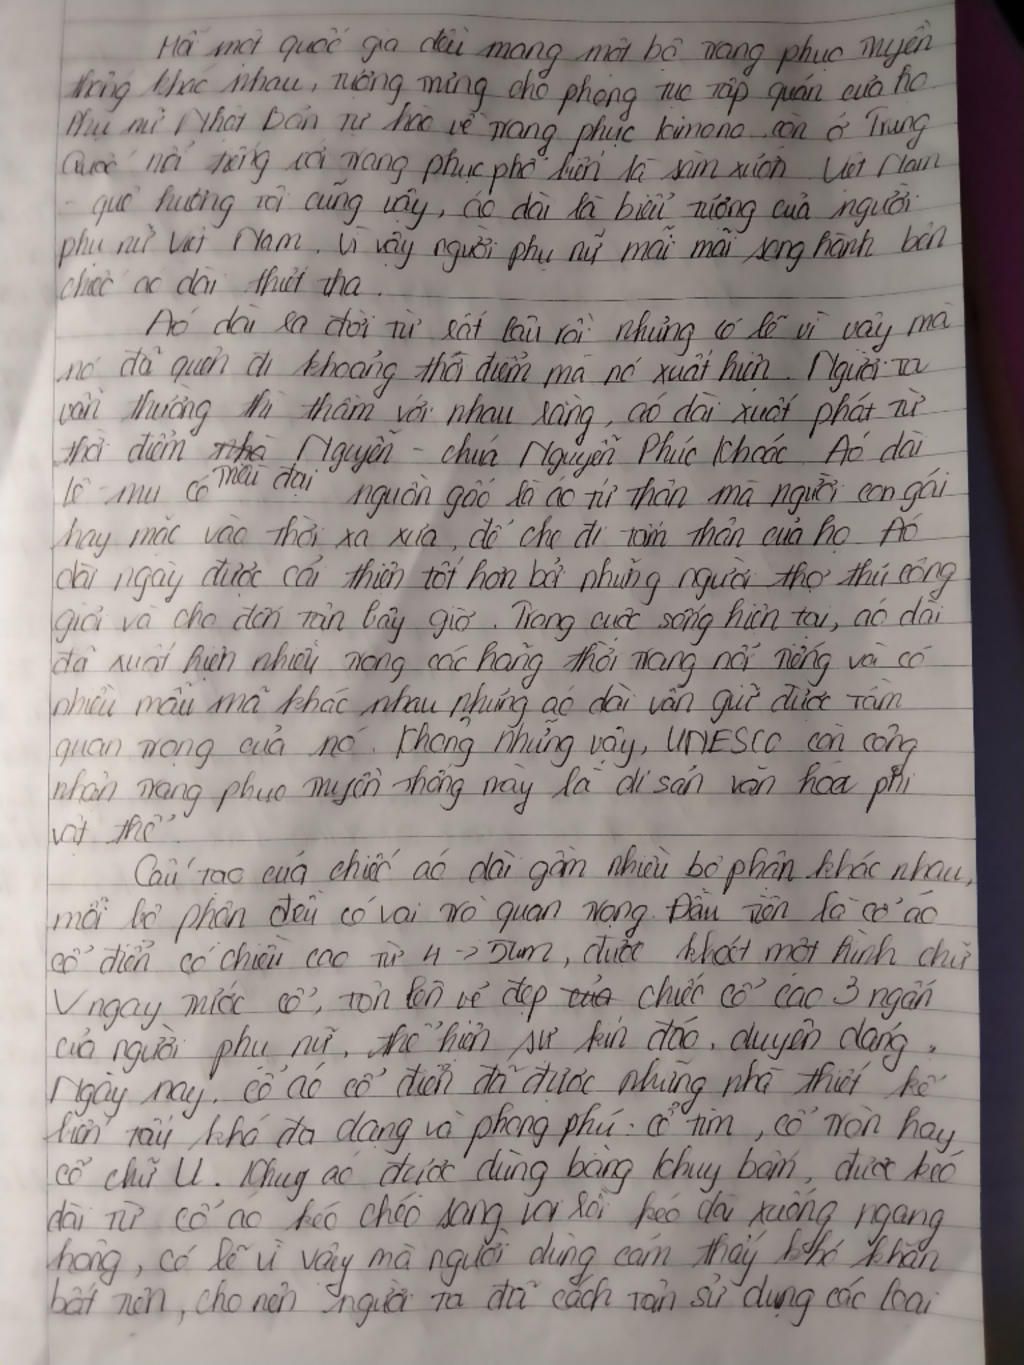 Mỗi một quốc gia đều mang một bộ trang phục truyền
thống khác nhau, tượng trưng cho phong tục tập quán của họ.
Phụ nữ Nhật Bản tự hào về trang phục kimono còn ở Trung
Quốc nổi tiếng với trang phục phổ biến là sườn xám Việt Nam
- quê hương tôi cũng vậy, áo dài là biểu tượng của người
phụ nữ Việt Nam. Vì vậy người phụ nữ mãi mãi song hành bên
chiếc áo dài thiết tha.
Aó dài ra đời từ rất lâu rồi nhưng có lẽ vì vậy mà
nó đã quên đi khoảng thời điểm mà nó xuất hiện. Người ta
vẫn thường thì thầm với nhau rằng, aó dài xuất phát từ
thời điểm Nguyễn - chúa Nguyễn Phúc Khoác. Aó dài
lê-mu có mẫu đại nguồn gốc là áo tứ thân mà người con gái
hay mặc vào thời xa xưa, để che đi tấm thân của họ. Aó
dài ngày được cải thiện tốt hơn bởi những người thợ thủ công
giỏi và cho đến tận bây giờ. Trong cuộc sống hiện tại, aó dài
đã xuất hiện nhiều trong các hãng thời trang nổi tiếng và có
nhiều mẫu mã khác nhau nhưng aó dài vẫn giữ được tầm
quan trọng của nó. Không những vậy, UNESCO còn công
nhận trang phục truyền thống này là di sản văn hóa phi
vật thể.
Cấu tạo của chiếc aó dài gồm nhiều bộ phận khác nhau,
mỗi bộ phận đều có vai trò quan trọng. Đầu tiên là cổ áo
cổ điển có chiều cao từ 4 -> 5cm, được khoét một hình chữ
V ngay trước cổ, tôn lên vẻ đẹp chiếc cổ cao 3 ngấn
của người phụ nữ, thể hiện sự kín đáo, duyên dáng.
Ngày nay, cổ aó cổ điển đã được những nhà thiết kế
biến tấu khá đa dạng và phong phú: cổ tim, cổ tròn hay
cổ chữ U. Khuy aó được dùng bằng khuy bấm, được kéo
dài từ cổ áo kéo chéo sang vai rồi kéo dài xuống ngang
hông, có lẽ vì vậy mà người dùng cảm thấy khó khăn
bất tiện, cho nên người ta đã cách tân sử dụng các loại